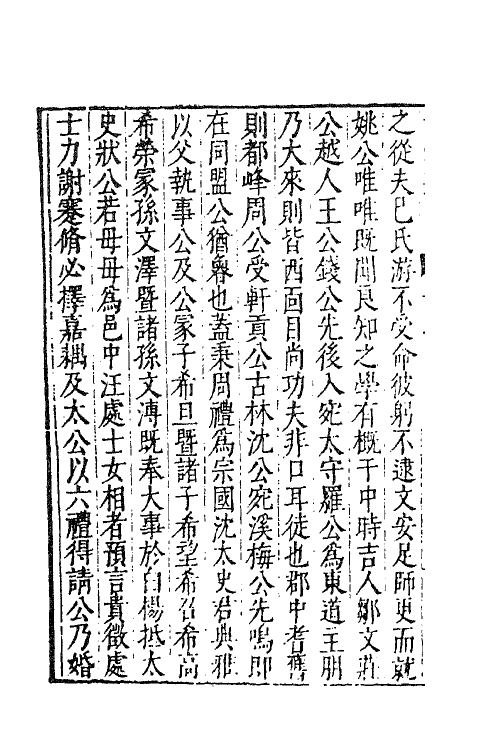 之從夫已氏游不受命彼躬不逮文安足師更而就
姚公唯唯既聞良知之學有概于中時吉人鄒文莊
公越人王公錢公先後入宛太守羅公為東道主朋
乃大來則皆西面目尚功夫非口耳徒也郡中耆舊
則都峰周公受軒貢公古林沈公宛溪梅公先鳴即
在同盟公猶魯也蓋秉周禮為宗國沈太史君典雅
以父執事公及公冢子希旦暨諸子希望希召希尚
希榮冢孫文澤暨諸孫文溥既奉大事於白楊抵太
史狀公若母母為邑中汪處士女相者預言貴徵處
士力謝蹇脩必擇嘉耦及太公以六禮得請公乃婚